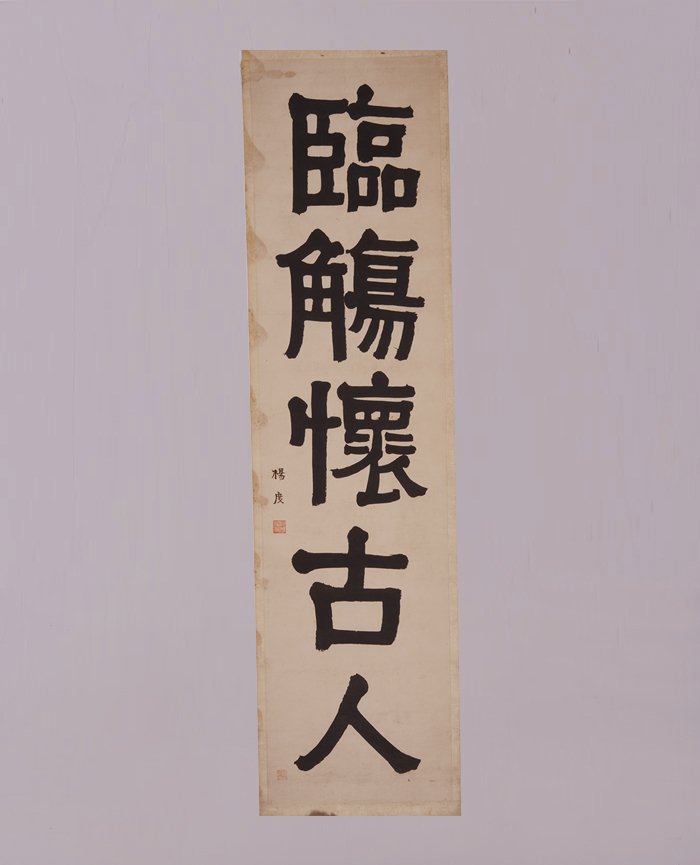 臨觴懷古人
楊度